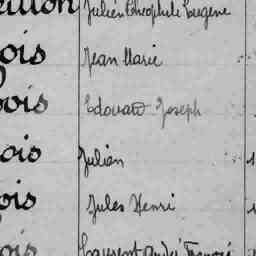 illon Julien Théophile Eugène
ois Jean Marie
ois Edouard Joseph
ois Julien
ois Jules Henri
ois Laurent André François